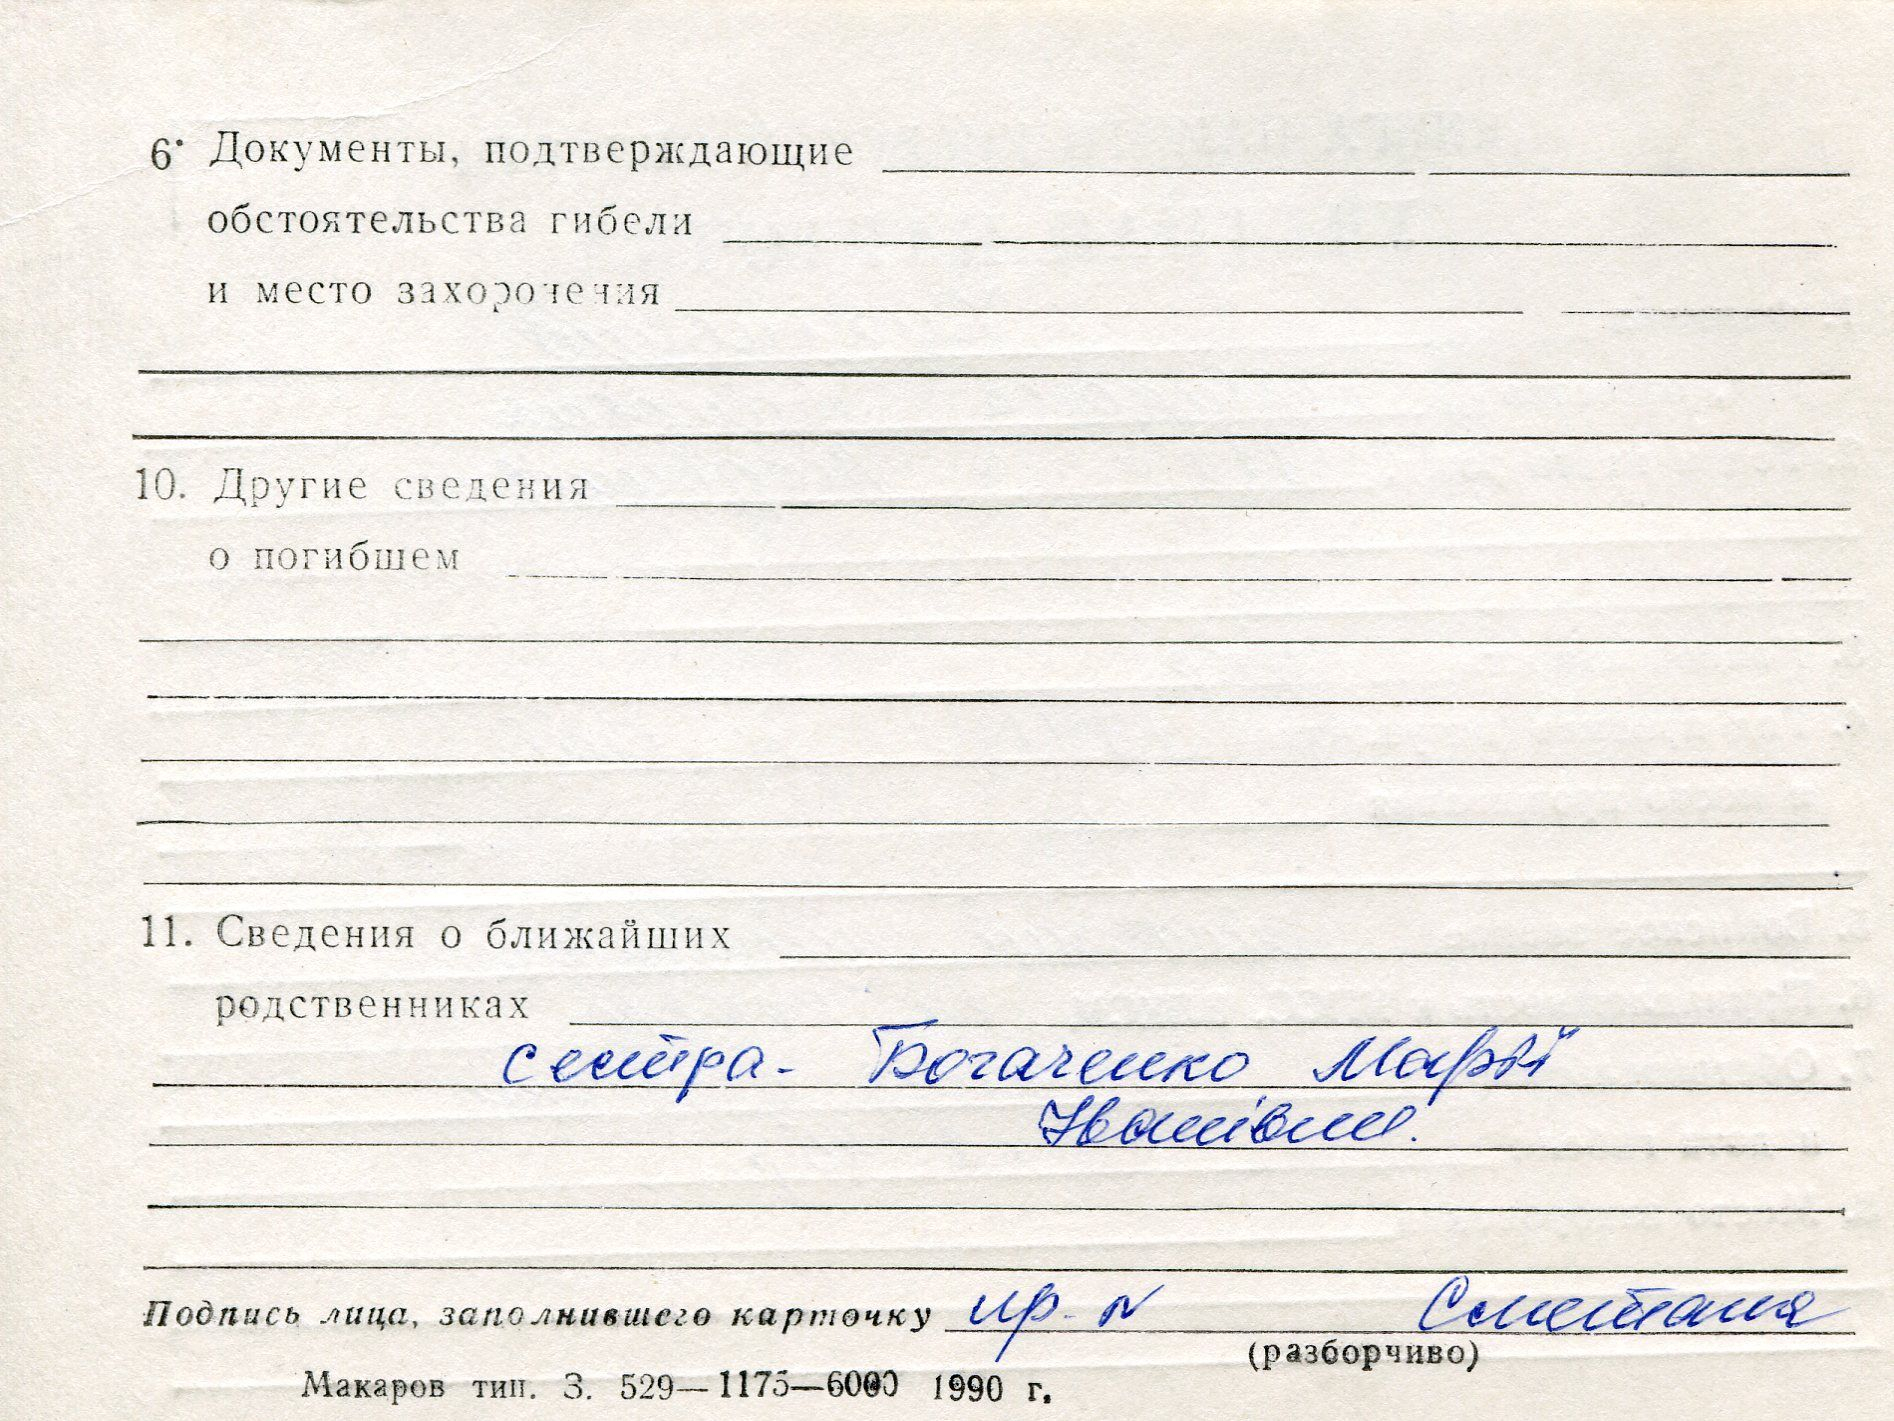 6. Документы, подтверждающие
обстоятельства гибели
и место захоронения
10. Другие сведения
о погибшем
11. Сведения о ближайших
родственниках
сестра - Богаченко Марія
Іванівна.
Подпись лица, заполнившего карточку пр. п Сметаня
(разборчиво)
Макаров тип. З. 529—1175—6000 1990 г.